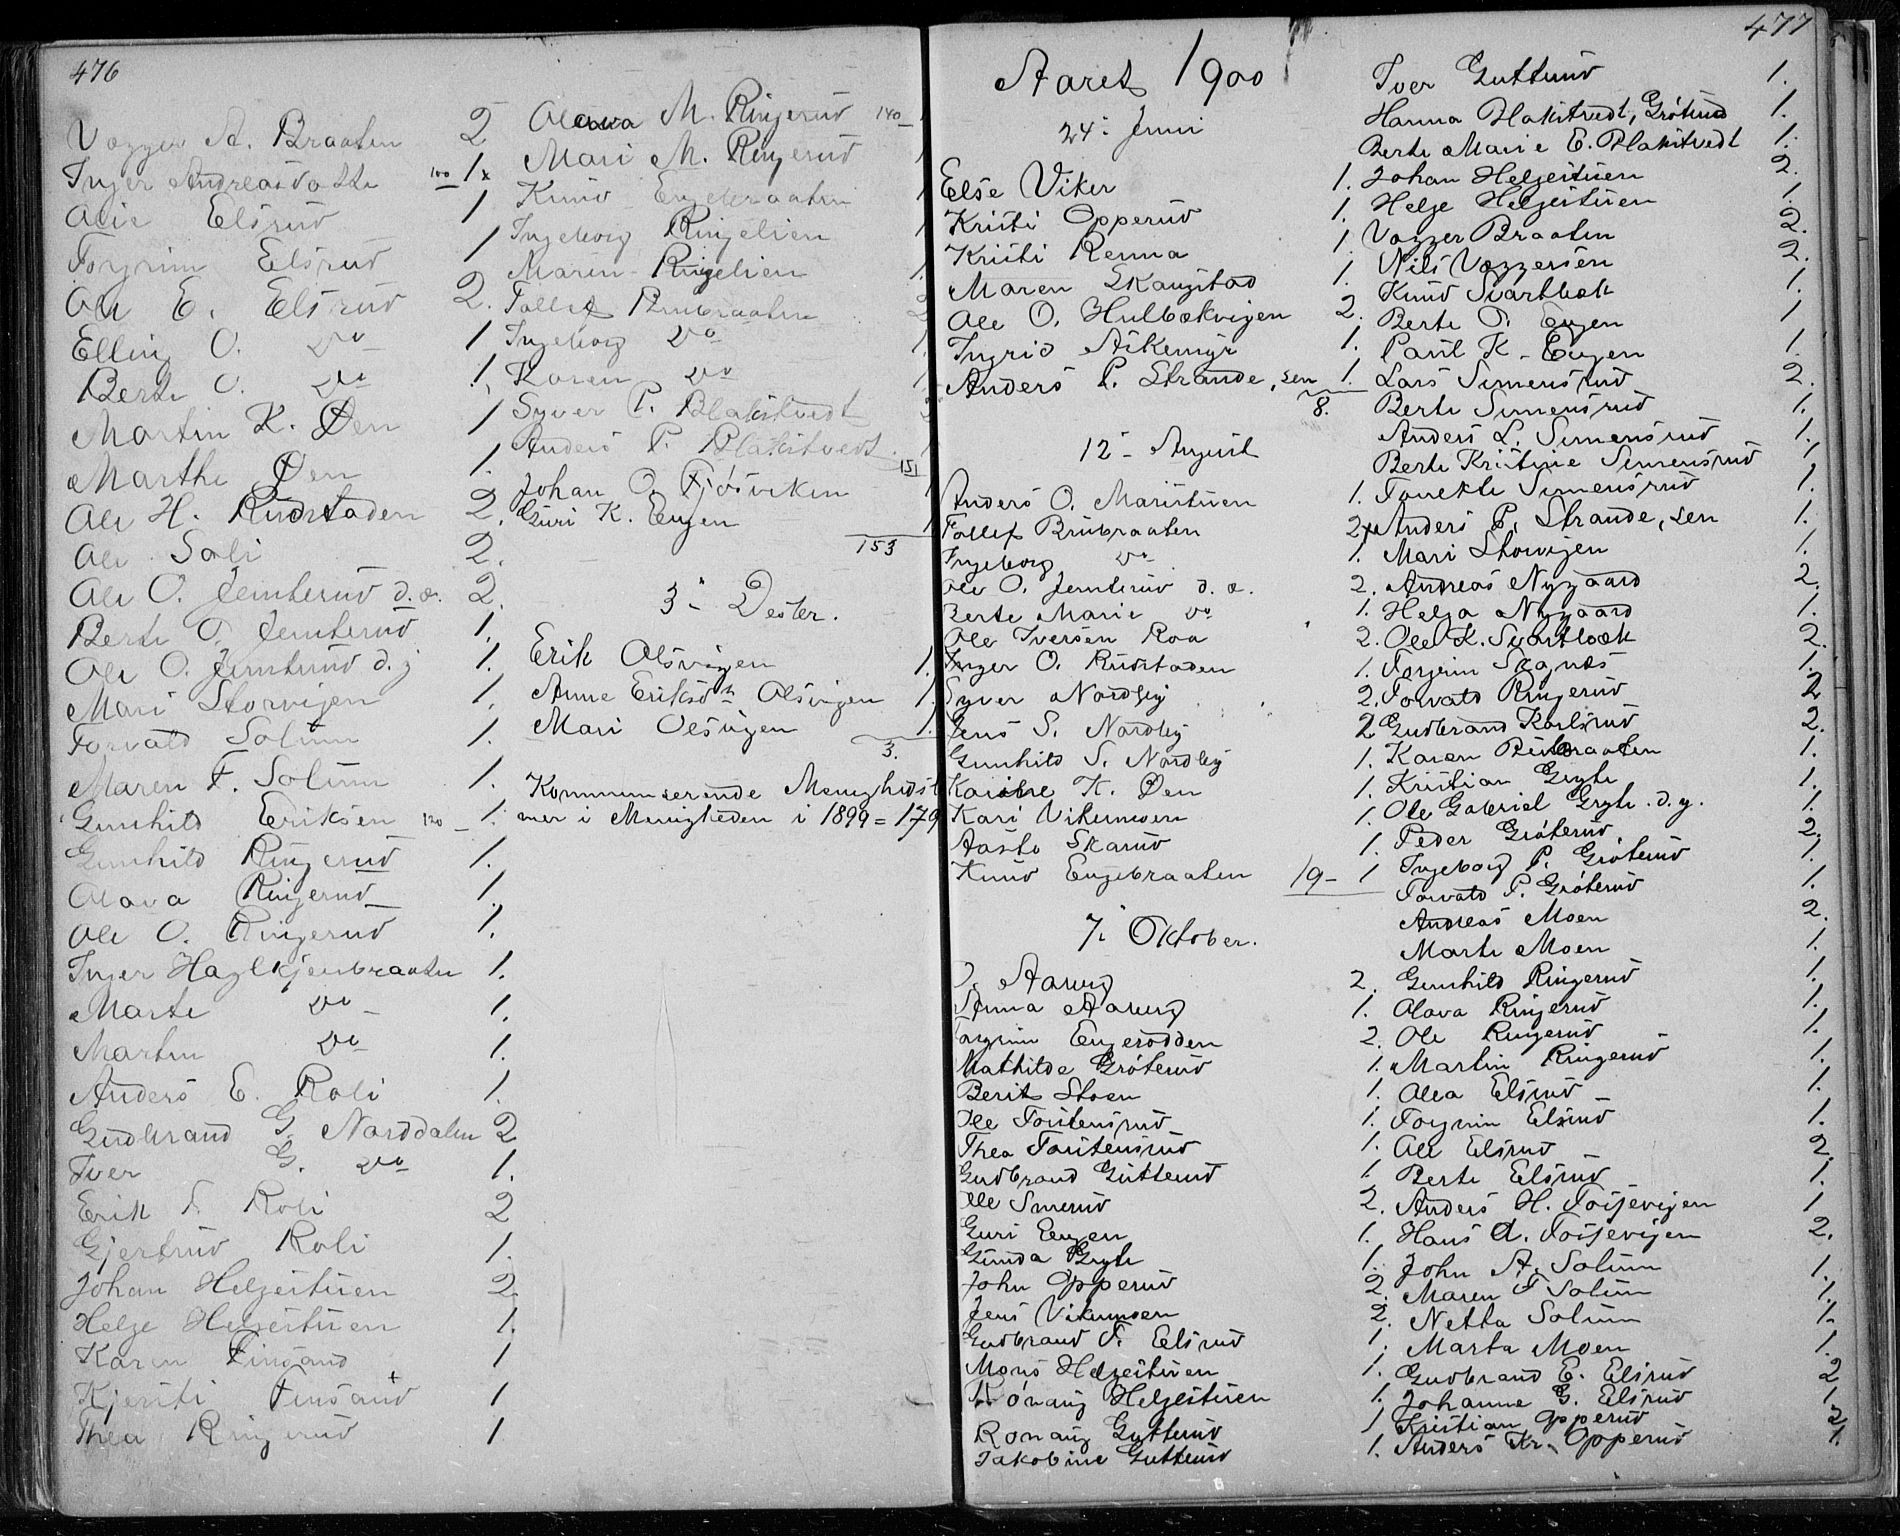 476
Vogger A. Braaten 2
Inger Andreasdatte 100 1x
Alie Elsrud 1
Torgrim Elsrud 1
Ole E. Elsrud 2.
Elling O. do 1
Berte O. do 1.
Martin K. Øen 1
Marthe Øen 1.
Ole H. Rudstaden 2.
Ole Soli 2.
Ole O. Jemterud d.æ. 2.
Berte O. Jemterud 1.
Ole O. Jemterud d.y 1.
Mari Storvigen 1.
Torvald Solum 1.
Maren T. Solum 1.
Gunhild Eriksen 120 1.
Gunhild Ringerud 1.
Olava Ringerud 1.
Ole O. Ringerud 1.
Inger Haglkjenbraaten 1.
Marte do 1.
Martin do 1.
Anders E. Roli 1.
Gudbrand G. Norddalen 2
Iver G. do 1.
Erik Roli 2
Gjertrud Roli 1.
Johan Helgeituen 2.
Helge Helgeituen 1.
Karen Finsand 1
Kjersti Finsand 1
Thea Ringerud 1
Olava M. Ringerud 140 1
Mari M. Ringerud 1
Knud Engebraaten 1
Ingeborg Ringelien 1
Maren Ringelien 1.
Tollef Brubraaten 2
Ingeborg do 1.
Karen do 1.
Syver P. Blakstvedt
Anders P. Blakstvedt 151
Johan O. Fjøsviken 1
Guri K. Eugen 1
153
3 - Dester.
Erik Olsvigen 1.
Anne Eriksdtr Olsvigen 1.
Mari Olsvigen 1.
3.
Kommunserende Menighedslem
mer i Menigheden i 1899 = 179
477
Aaret 1900
24. Juni
Else Viker 1.
Kristi Opperud 1.
Kristi Renna 1.
Maren Skaugstad 1.
Ole O. Hulbækvigen 2.
Ingrid Aikemyr 1.
Anders P. Strande, sen 1.
8.
12 - August
Anders O. Maristuen 1.
Tollef Brubraaten 2
Ingeborg do 1.
Ole O. Jemterud d.æ. 2.
Berte Marie do 1.
Ole Iversen Roa 2.
Inger O. Rudstaden 1.
Syver Nordby 2.
Jens S. Nordby 2
Gunhild S. Nordby 1.
Karine K. Øen 1.
Kari Vikumoen 1.
Aaste Skarud 1.
Knud Engebraaten 19 - 1
7. Oktober.
O. Aaberg 2.
Anna Aaberg 1.
Torgrim Engerodden 2.
Mathilde Grøterud 1.
Berit Stoen 1.
Ole Tostensrud 1.
Thea Tostensrud 1.
Gudbrand Gutterud 1
Ole Smerud 2.
Guri Eugen 1.
Gunda Gryte 1.
John Opperud 2.
Jens Vikumoen 2.
Gudbrand T. Elsrud 1.
Mons Helgeituen 1.
Rønaug Helgeituen 1.
Ronaug Gutterud 1
Jakobine Gutterud 1.
Iver Gutterud 1.
Hanna Blakstvedt, Grøterud 1.
Berte Marie E. Blakstvedt 1.
Johan Helgeituen 2.
Helge Helgeituen 1.
Vogger Braaten 2.
Nils Voggersen 2.
Knud Svartbæk 1.
Berte P. Eugen 1
Paul K. Eugen 1.
Lars Simensrud 2.
Berte Simensrud 1.
Anders L. Simensrud 1.
Berte Kristine Simensrud 1
Tonette Simensrud 1.
Anders P. Strande, sen 1.
Mari Storvigen 1.
Andreas Nygaard 2.
Helga Nygaard 1.
Ole K. Svartbæk 2.
Torgrim Sognes 1.
Torvald Ringerud 2
Gudbrand Karlsrud 2.
Karen Brubraaten 1.
Kristian Gryte 1.
Ole Gabriel Gryte d.y. 1.
Peder Grøterud 2.
Ingeborg P. Grøterud 1.
Torvald P. Grøterud 1.
Andreas Moen 2.
Marte Moen 1.
Gunhild Ringerud 1.
Olava Ringerud 1.
Ole Ringerud 1.
Martin Ringerud 1.
Olea Elsrud 1.
Torgrim Elsrud 1.
Ole Elsrud 2.
Berte Elsrud 1.
Anders H. Fossevigen 1
Hans A. Fossevigen 2.
John A. Solum 1.
Maren T Solum 1.
Netta Solum 1.
Marta Moen 1.
Gudbrand E. Elsrud 2
Johanne G. Elsrud 1
Kristian Opperud 2
Anders Kr. Opperud 1.